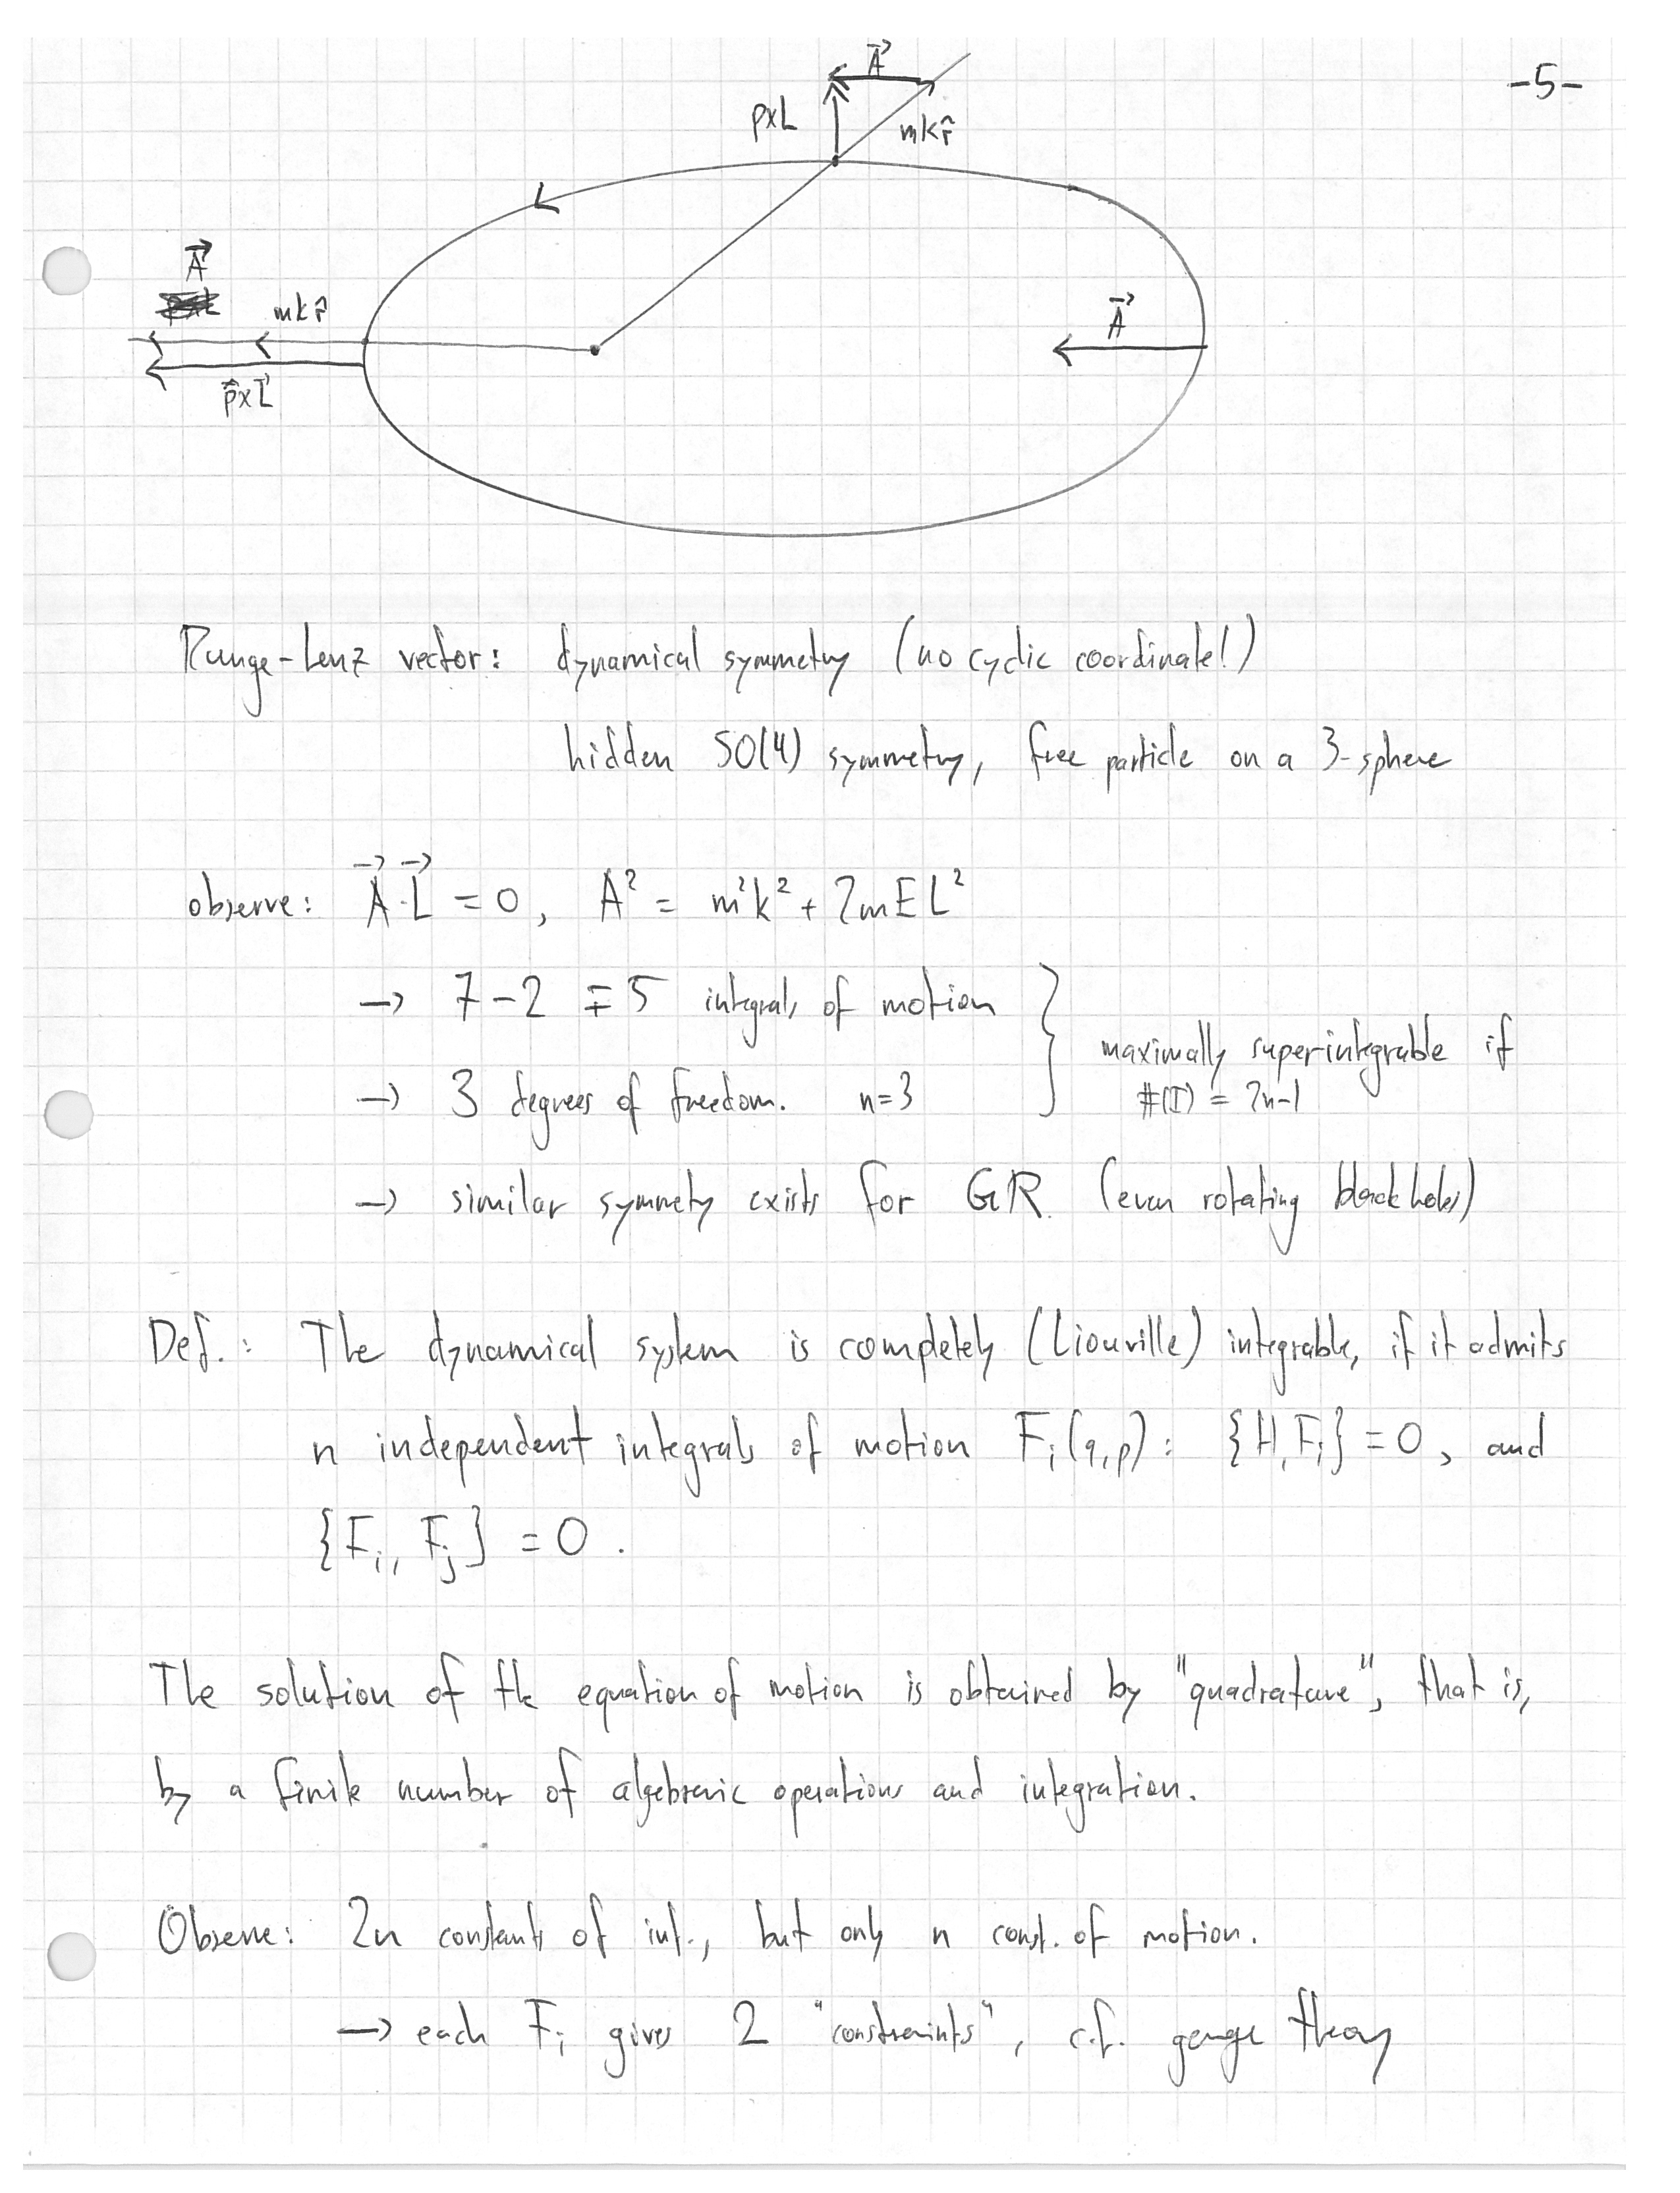 -5-
A⃗
p×L
mk r̂
A⃗
mk r̂
p⃗×L⃗
A⃗
Runge-Lenz vector: dynamical symmetry (no cyclic coordinate!)
hidden SO(4) symmetry, free particle on a 3-sphere
observe: A⃗·L⃗ = 0, A² = m²k² + 2mEL²
→ 7-2 = 5 integrals of motion
→ 3 degrees of freedom. n=3
maximally superintegrable if
#(I) = 2n-1
→ similar symmety exists for GR. (even rotating black holes)
Def.: The dynamical system is completely (Liouville) integrable, if it admits
n independent integrals of motion F_i(q,p): {H,F_i} = 0, and
{F_i, F_j} = 0.
The solution of the equation of motion is obtained by "quadrature", that is,
by a finite number of algebraic operations and integration.
Observe: 2n constants of int., but only n const. of motion.
→ each F_i gives 2 "constraints", c.f. gauge theory